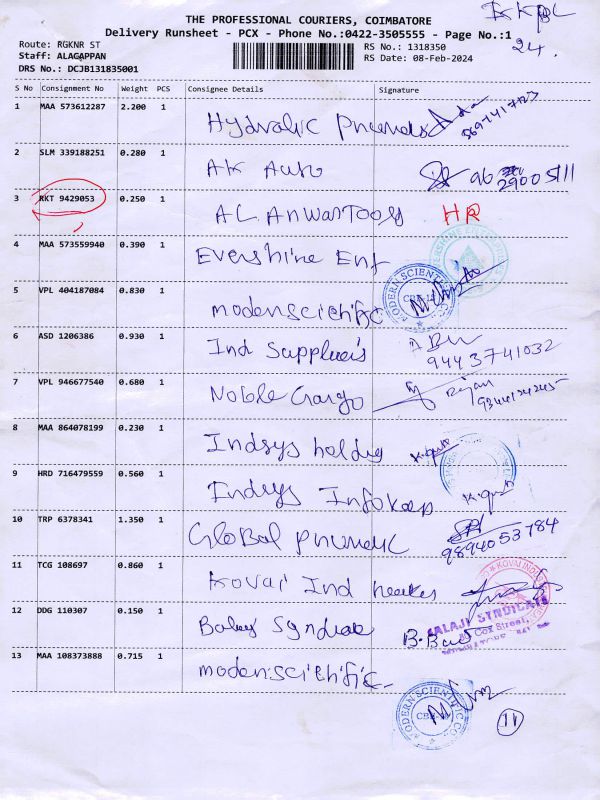 THE PROFESSIONAL COURIERS, COIMBATORE
Delivery Runsheet - PCX - Phone No.:0422-3505555 - Page No.:1
24.
Route: RGKNR ST
Staff: ALAGAPPAN
DRS No.: DCJB131835001
RS No.: 1318350
RS Date: 08-Feb-2024
S No Consignment No Weight PCS Consignee Details Signature
1 MAA 573612287 2.200 1 Hydralic
2 SLM 339188251 0.280 1 AK Auto
3 RKT 9429053 0.250 1 AL ANWAR TOOLS HR
4 MAA 573559940 0.390 1 Evershine Ent
5 VPL 404187084 0.830 1 modenscientific
MODERN SCIENTIFIC CO
6 ASD 1206386 0.930 1 Ind Suppliers 9443741032
7 VPL 946677540 0.680 1 Noble Cargo Rajan
8 MAA 864078199 0.230 1 Indsys holding
9 HRD 716479559 0.560 1 Indsys
10 TRP 6378341 1.350 1 Global 9894053784
11 TCG 108697 0.860 1 Kovai Ind
12 DDG 110307 0.150 1
BALAJI SYNDICATE
Cox Street,
13 MAA 108373888 0.715 1 modenscientific
MODERN SCIENTIFIC CO
11